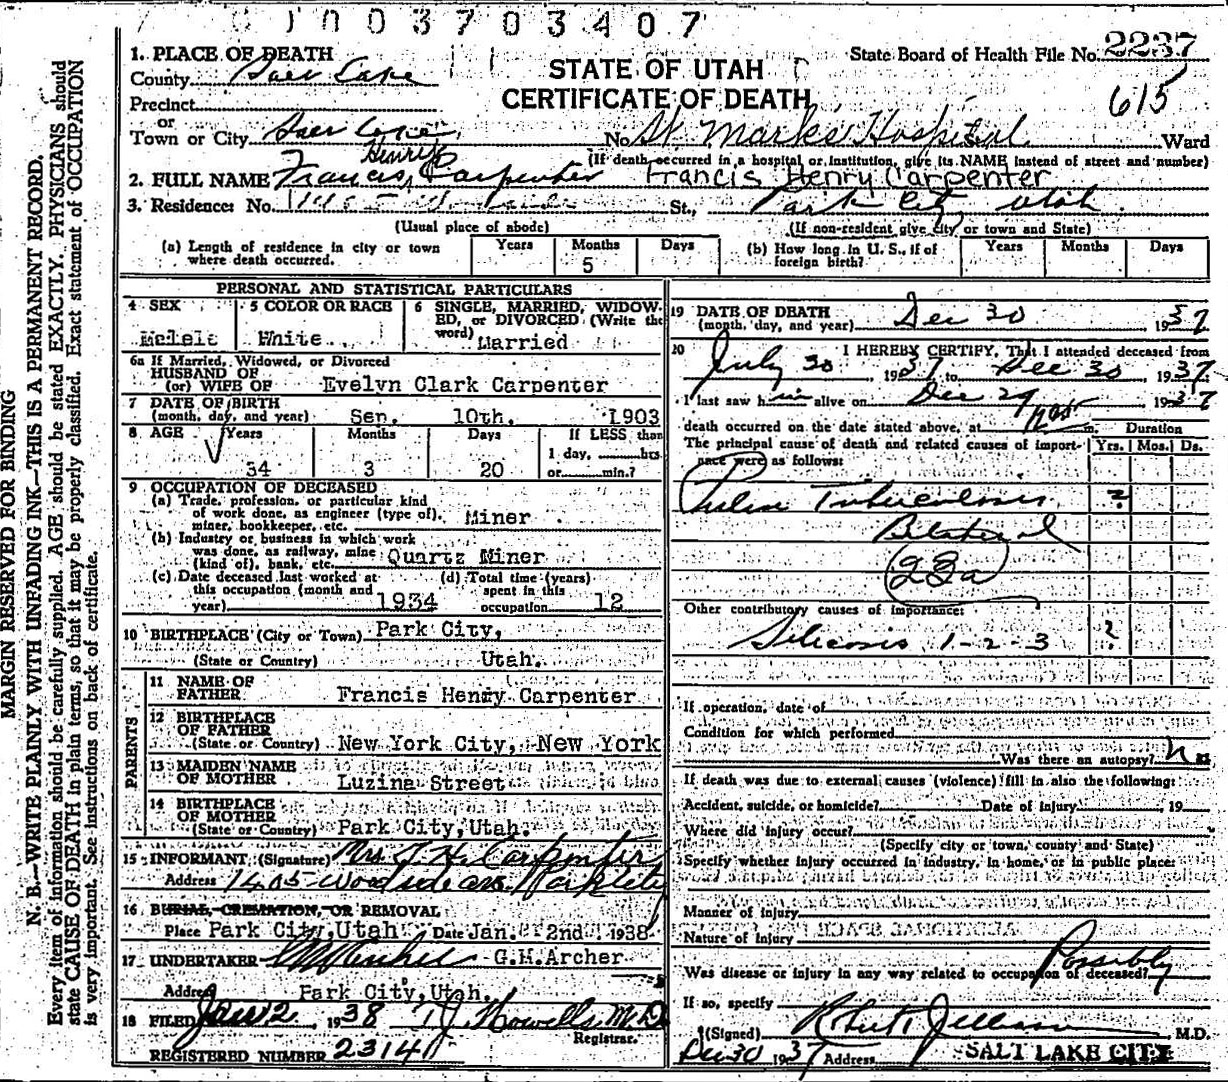 0 1 0 0 3 7 0 3 4 0 7
MARGIN RESERVED FOR BINDING
N. B.—WRITE PLAINLY WITH UNFADING INK—THIS IS A PERMANENT RECORD.
Every item of information should be carefully supplied. AGE should be stated EXACTLY. PHYSICIANS should
state CAUSE OF DEATH in plain terms, so that it may be properly classified. Exact statement of OCCUPATION
is very important. See instructions on back of certificate.
State Board of Health File No. 2237
615
STATE OF UTAH
CERTIFICATE OF DEATH
1. PLACE OF DEATH
County Salt Lake
Precinct
or
Town or City Salt Lake No. St Marks Hospital Ward
(If death occurred in a hospital or institution, give its NAME instead of street and number)
2. FULL NAME Francis Henry Carpenter Francis Henry Carpenter
3. Residence: No. 1405 Woodside St., Park City, Utah.
(Usual place of abode) (If non-resident give city or town and State)
(a) Length of residence in city or town where death occurred. Years Months 5 Days
(b) How long in U. S., if of foreign birth? Years Months Days
PERSONAL AND STATISTICAL PARTICULARS
4 SEX
5 COLOR OR RACE White
6 SINGLE, MARRIED, WIDOWED, or DIVORCED (Write the word) Married
6a If Married, Widowed, or Divorced
HUSBAND OF
(or) WIFE OF Evelyn Clark Carpenter
7 DATE OF BIRTH
(month, day, and year) Sep. 10th. 1903
8 AGE Years 34 Months 3 Days 20 If LESS than 1 day, hrs. or min.?
9 OCCUPATION OF DECEASED
(a) Trade, profession, or particular kind
of work done, as engineer (type of),
miner, bookkeeper, etc. Miner
(b) Industry or business in which work
was done, as railway, mine
(kind of), bank, etc. Quartz Miner
(c) Date deceased last worked at this occupation (month and year) 1934
(d) Total time (years) spent in this occupation 12
10 BIRTHPLACE (City or Town) Park City,
(State or Country) Utah.
PARENTS
11 NAME OF FATHER Francis Henry Carpenter
12 BIRTHPLACE OF FATHER
(State or Country) New York City, New York
13 MAIDEN NAME OF MOTHER Luzina Street
14 BIRTHPLACE OF MOTHER
(State or Country) Park City, Utah.
15 INFORMANT (Signature) Mrs F. H. Carpenter
Address 1405 Woodside ave. Park City
16 BURIAL, CREMATION, OR REMOVAL
Place Park City, Utah Date Jan. 2nd 1938
17 UNDERTAKER G.H.Archer
Address Park City, Utah.
18 FILED Jan 2, 1938 Howells M.D.
Registrar.
REGISTERED NUMBER 2314
19 DATE OF DEATH
(month, day, and year) Dec 30 1937
20 I HEREBY CERTIFY, That I attended deceased from
July 30 1937 to Dec 30 1937
I last saw him alive on Dec 29 1937
death occurred on the date stated above, at m. Duration
The principal cause of death and related causes of importance were as follows: Yrs. Mos. Ds.
Tuberculosis ?
Bilateral
(23a)
Other contributory causes of importance:
Silicosis 1-2-3 ?
If operation, date of
Condition for which performed
Was there an autopsy? no
If death was due to external causes (violence) fill in also the following:
Accident, suicide, or homicide? Date of injury , 19
Where did injury occur?
(Specify city or town, county and State)
Specify whether injury occurred in industry, in home, or in public place:
Manner of injury
Nature of injury
Was disease or injury in any way related to occupation of deceased? Possibly
If so, specify
(Signed) Robert M.D.
Dec 30 1937 Address SALT LAKE CITY